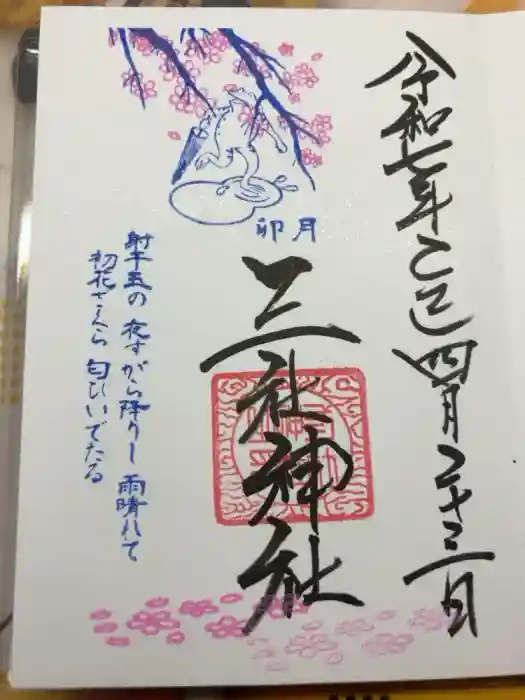 令和七年乙巳四月二十三日
卯月
三社神社
射干玉の 夜すがら降りし 雨晴れて
初花さくら 匂ひいでたる